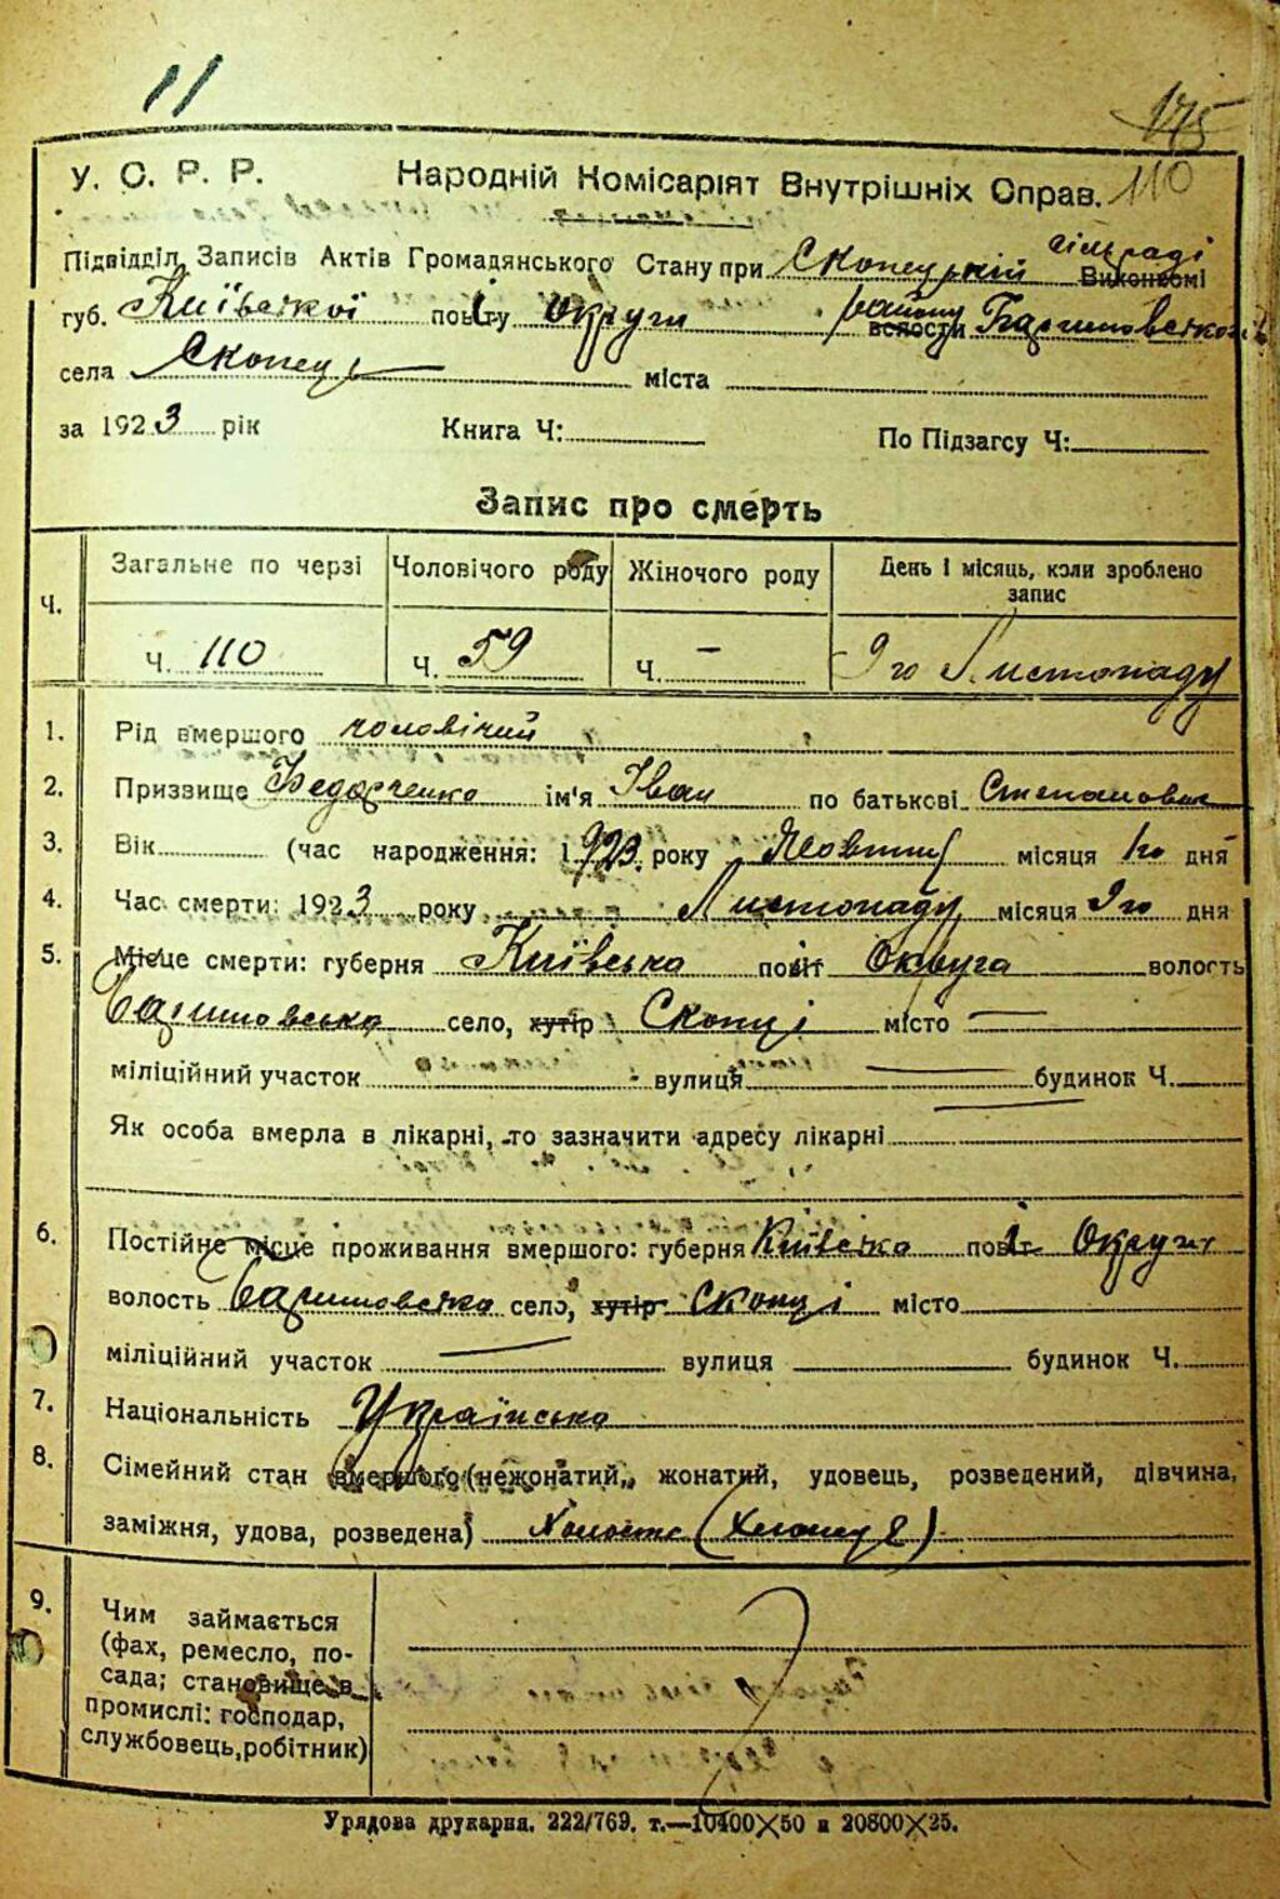 11
175
У. С. Р. Р. Народній Комісаріят Внутрішніх Справ. 110
Підвідділ Записів Актів Громадянського Стану при Скопецькій сільраді Виконкомі
губ. Київської повіту Округи району волости Баришовського
села Скопці міста
за 1923 рік Книга Ч: По Підзагсу Ч:
Запис про смерть
Ч. Загальне по черзі Чоловічого роду Жіночого роду День і місяць, коли зроблено запис
Ч. 110 Ч. 59 Ч. — 9го Листопаду
1. Рід вмершого чоловічий
2. Призвище Федорченко ім'я Іван по батькові Степанович
3. Вік (час народження: 1923 року Жовтня місяця 1го дня
4. Час смерти: 1923 року Листопаду місяця 9го дня
5. Місце смерти: губерня Київська повіт Округа волость
Баришовська село, хутір Скопці місто —
міліційний участок вулиця будинок Ч.
Як особа вмерла в лікарні, то зазначити адресу лікарні
6. Постійне місце проживання вмершого: губерня Київська повіт Округи
волость Баришовська село, хутір Скопці місто
міліційний участок вулиця будинок Ч.
7. Національність Українська
8. Сімейний стан вмершого (нежонатий, жонатий, удовець, розведений, дівчина,
заміжня, удова, розведена)
9. Чим займається
(фах, ремесло, по-
сада; становище в
промислі: господар,
службовець, робітник)
Урядова друкарня. 222/769. т.—10400×50 и 20800×25.